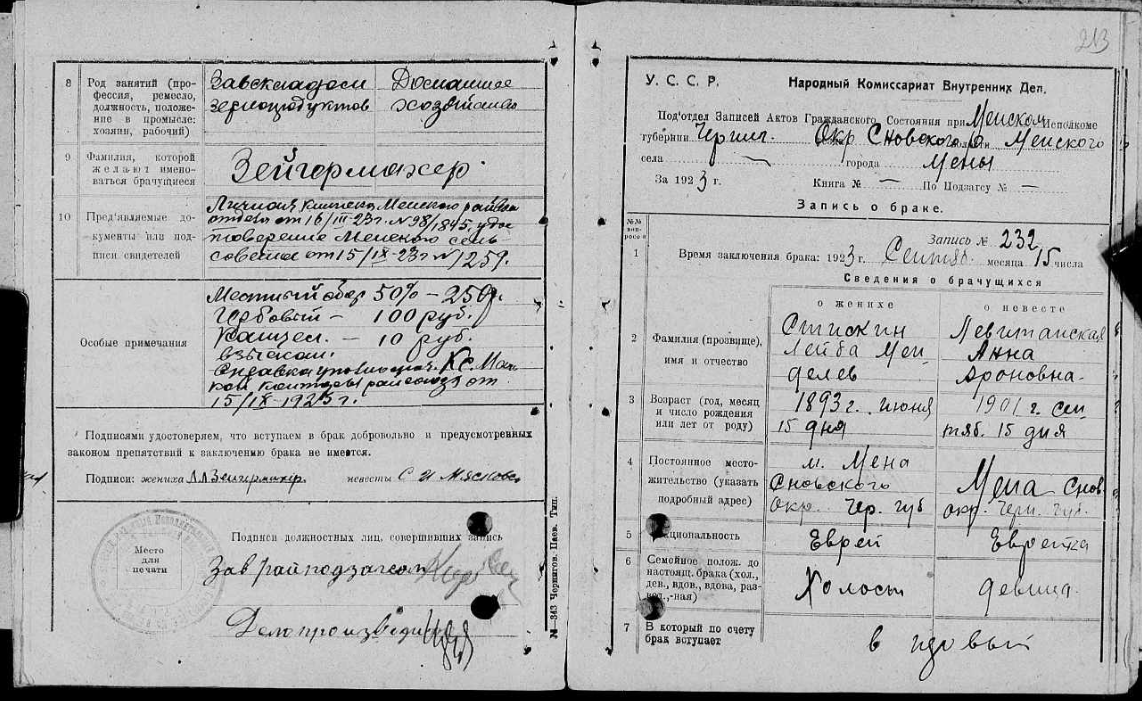 8 Род занятий (про-
фессия, ремесло,
должность, положе-
ние в промысле:
хозяин, рабочий)
Завскладом
зернопродуктов
Домашнее
хозяйство
9 Фамилия, которой
желают имено-
ваться брачущиеся
Зейгермахер
10 Пред'являемые до-
кументы или под-
писи свидетелей
Личная Менского
от 16/III-23г. N 98/1845, удос
товерение Менского сель-
совета от 15/IX-23г N 1259.
Особые примечания
Местный сбор 50% — 250р.
Гербовый — 100 руб.
Канцел. — 10 руб.
взыскан.
Справка
конторы райсоюза от
15/IX-1923г.
Подписями удостоверяем, что вступаем в брак добровольно и предусмотренных
законом препятствий к заключению брака не имеется.
Подписи: жениха невесты
Подписи должностных лиц, совершивших запись
Место
для
печати
Зав райподзагсом
Делопроизводит
№—343 Чернигов. Наев. Тип.
213
У. С. С. Р. Народный Комиссариат Внутренних Дел.
Под'отдел Записей Актов Гражданского Состояния при Менском Исполкоме
губернии Черниг. Окр Сновского Менского
села — города Мены
За 1923 г. Книга № — По Подзагсу № —
Запись о браке.
№№ вопросов
Запись № 232
1 Время заключения брака: 1923 г. Сентяб. месяца 15 числа
Сведения о брачущихся
о женихе о невесте
2 Фамилия (прозвище),
имя и отчество
Спискин
Лейба Мен
делев
Левитанская
Анна
Ароновна
3 Возраст (год, месяц
и число рождения
или лет от роду)
1893 г. июня
15 дня
1901 г. сен
тяб. 15 дня
4 Постоянное место-
жительство (указать
подробный адрес)
м. Мена
Сновского
Окр. Чер. губ
Мена Снов.
окр. Черн. губ.
5 Национальность
Еврей
Еврейка
6 Семейное полож. до
настоящ. брака (хол.,
дев., вдов., вдова, раз-
вед.,-ная)
Холост
девица
7 В который по счету
брак вступает
в первый